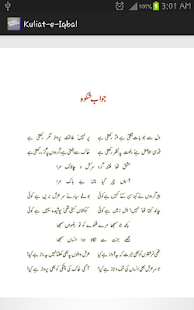 3:01 AM
Kuliat-e-Iqbal
جواب شکوہ
دل سے جو بات نکلتی ہے اثر رکھتی ہے پر نہیں طاقت پرواز مگر رکھتی ہے
قدسی الاصل ہے رفعت پہ نظر رکھتی ہے خاک سے اٹھتی ہے گردوں پہ گزر رکھتی ہے
عشق تھا فتنہ گر و سرکش و چالاک مرا
آسماں چیر گیا نالہ بے باک مرا
پیر گردوں نے کہا سن کے کہیں ہے کوئی بولے سیارے سر عرش بریں ہے کوئی
چاند کہتا تھا نہیں اہل زمیں ہے کوئی کہکشاں کہتی تھی پوشیدہ یہیں ہے کوئی
کچھ جو سمجھا مرے شکوے کو تو رضواں سمجھا
مجھے جنت سے نکالا ہوا انساں سمجھا
تھی فرشتوں کو بھی حیرت کہ یہ آواز ہے کیا عرش والوں پہ بھی کھلتا نہیں یہ راز ہے کیا
تا سر عرش بھی انساں کی تگ و تاز ہے کیا آگئی خاک کی چٹکی کو بھی پرواز ہے کیا